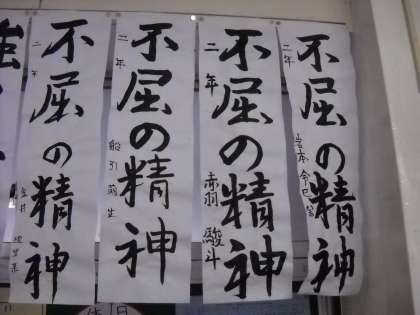 不屈の精神
二年
岩本
不屈の精神
二年
赤羽 駿斗
不屈の精神
二年
船引 萌生
不屈の精神
二年